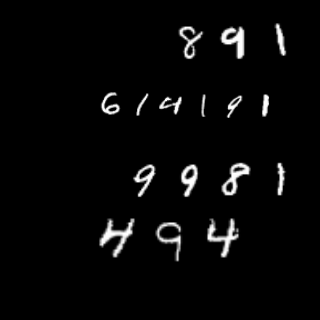 891
614191
9981
494